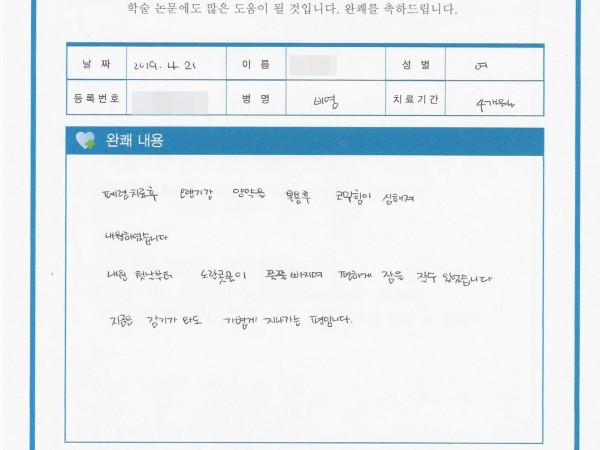 학술 논문에도 많은 도움이 될 것입니다. 완쾌를 축하드립니다.
날 짜 2019. 4. 21 이 름 성 별 여
등록번호 병 명 비염 치료기간 4개월
완쾌 내용
폐렴치료후 오랜기간 양약을 복용후 코막힘이 심해져
내원하였습니다
내원 첫날부터 노란콧물이 쭉쭉 빠지며 편하게 잠을 잘수 있었습니다
지금은 감기가 와도 가볍게 지나가는 편입니다.